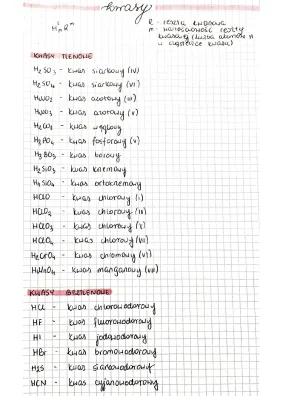 kwasy
HₙRᵐ
R - reszta kwasowa
m - wartościowość reszty
kwasowej (liczba atomów H
w cząsteczce kwasu)
KWASY TLENOWE
H₂SO₃ - kwas siarkowy (IV)
H₂SO₄ - kwas siarkowy (VI)
HNO₂ - kwas azotowy (III)
HNO₃ - kwas azotowy (V)
H₂CO₃ - kwas węglowy
H₃PO₄ - kwas fosforowy (V)
H₃BO₃ - kwas borowy
H₂SiO₃ - kwas krzemowy
H₄SiO₄ - kwas ortokrzemowy
HClO - kwas chlorowy (I)
HClO₂ - kwas chlorowy (III)
HClO₃ - kwas chlorowy (V)
HClO₄ - kwas chlorowy (VII)
H₂CrO₄ - kwas chromowy (VI)
HMnO₄ - kwas manganowy (VII)
KWASY BEZTLENOWE
HCl - kwas chlorowodorowy
HF - kwas fluorowodorowy
HI - kwas jodowodorowy
HBr - kwas bromowodorowy
H₂S - kwas siarkowodorowy
HCN - kwas cyjanowodorowy